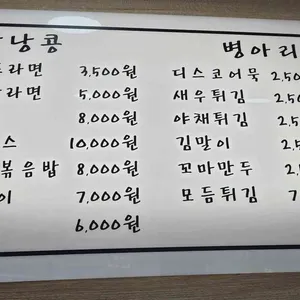 낭콩
라면 3,500원
라면 5,000원
8,000원
스 10,000원
볶음밥 8,000원
이 7,000원
6,000원
병아리
디스코어묵 2,50
새우튀김 2,50
야채튀김 2,5
김말이 2,5
꼬마만두 2,5
모듬튀김 2,5